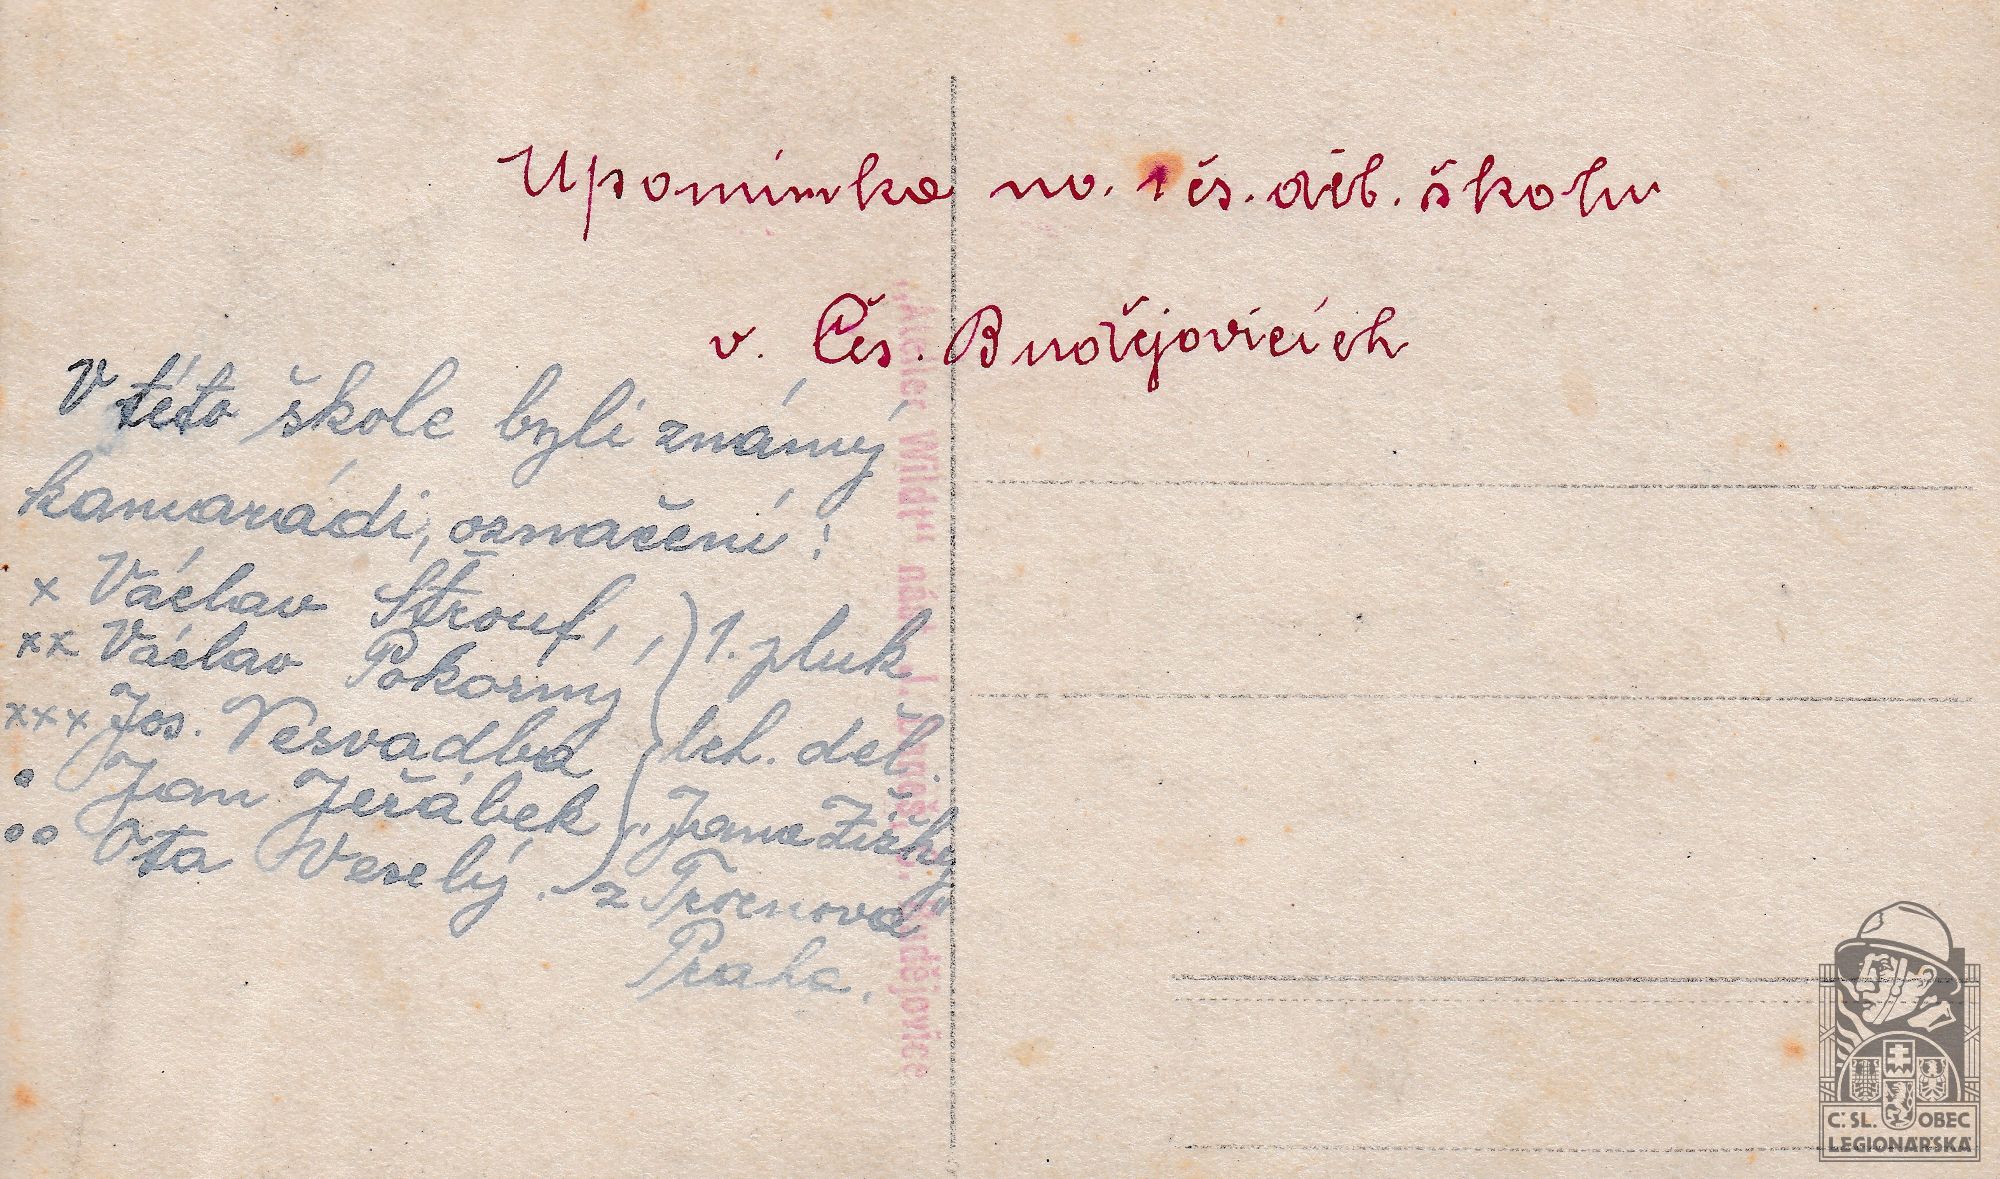 Upomínka na. 1 čs. děl. školu
v. Čes. Budějovicích
V této škole byli známý
kamarádi, označení:
x Václav Štrouf,
xx Václav Pokorný
xxx Jos. Nesvadba
• Jan Jeřábek
oo Ota Veselý.
1. pluk
leh. děl.
"Jana Žižky
z Trocnova"
Praha.
"Atelier Wildt" nám. 1. Budějovice
Č. SL. OBEC
LEGIONÁŘSKÁ